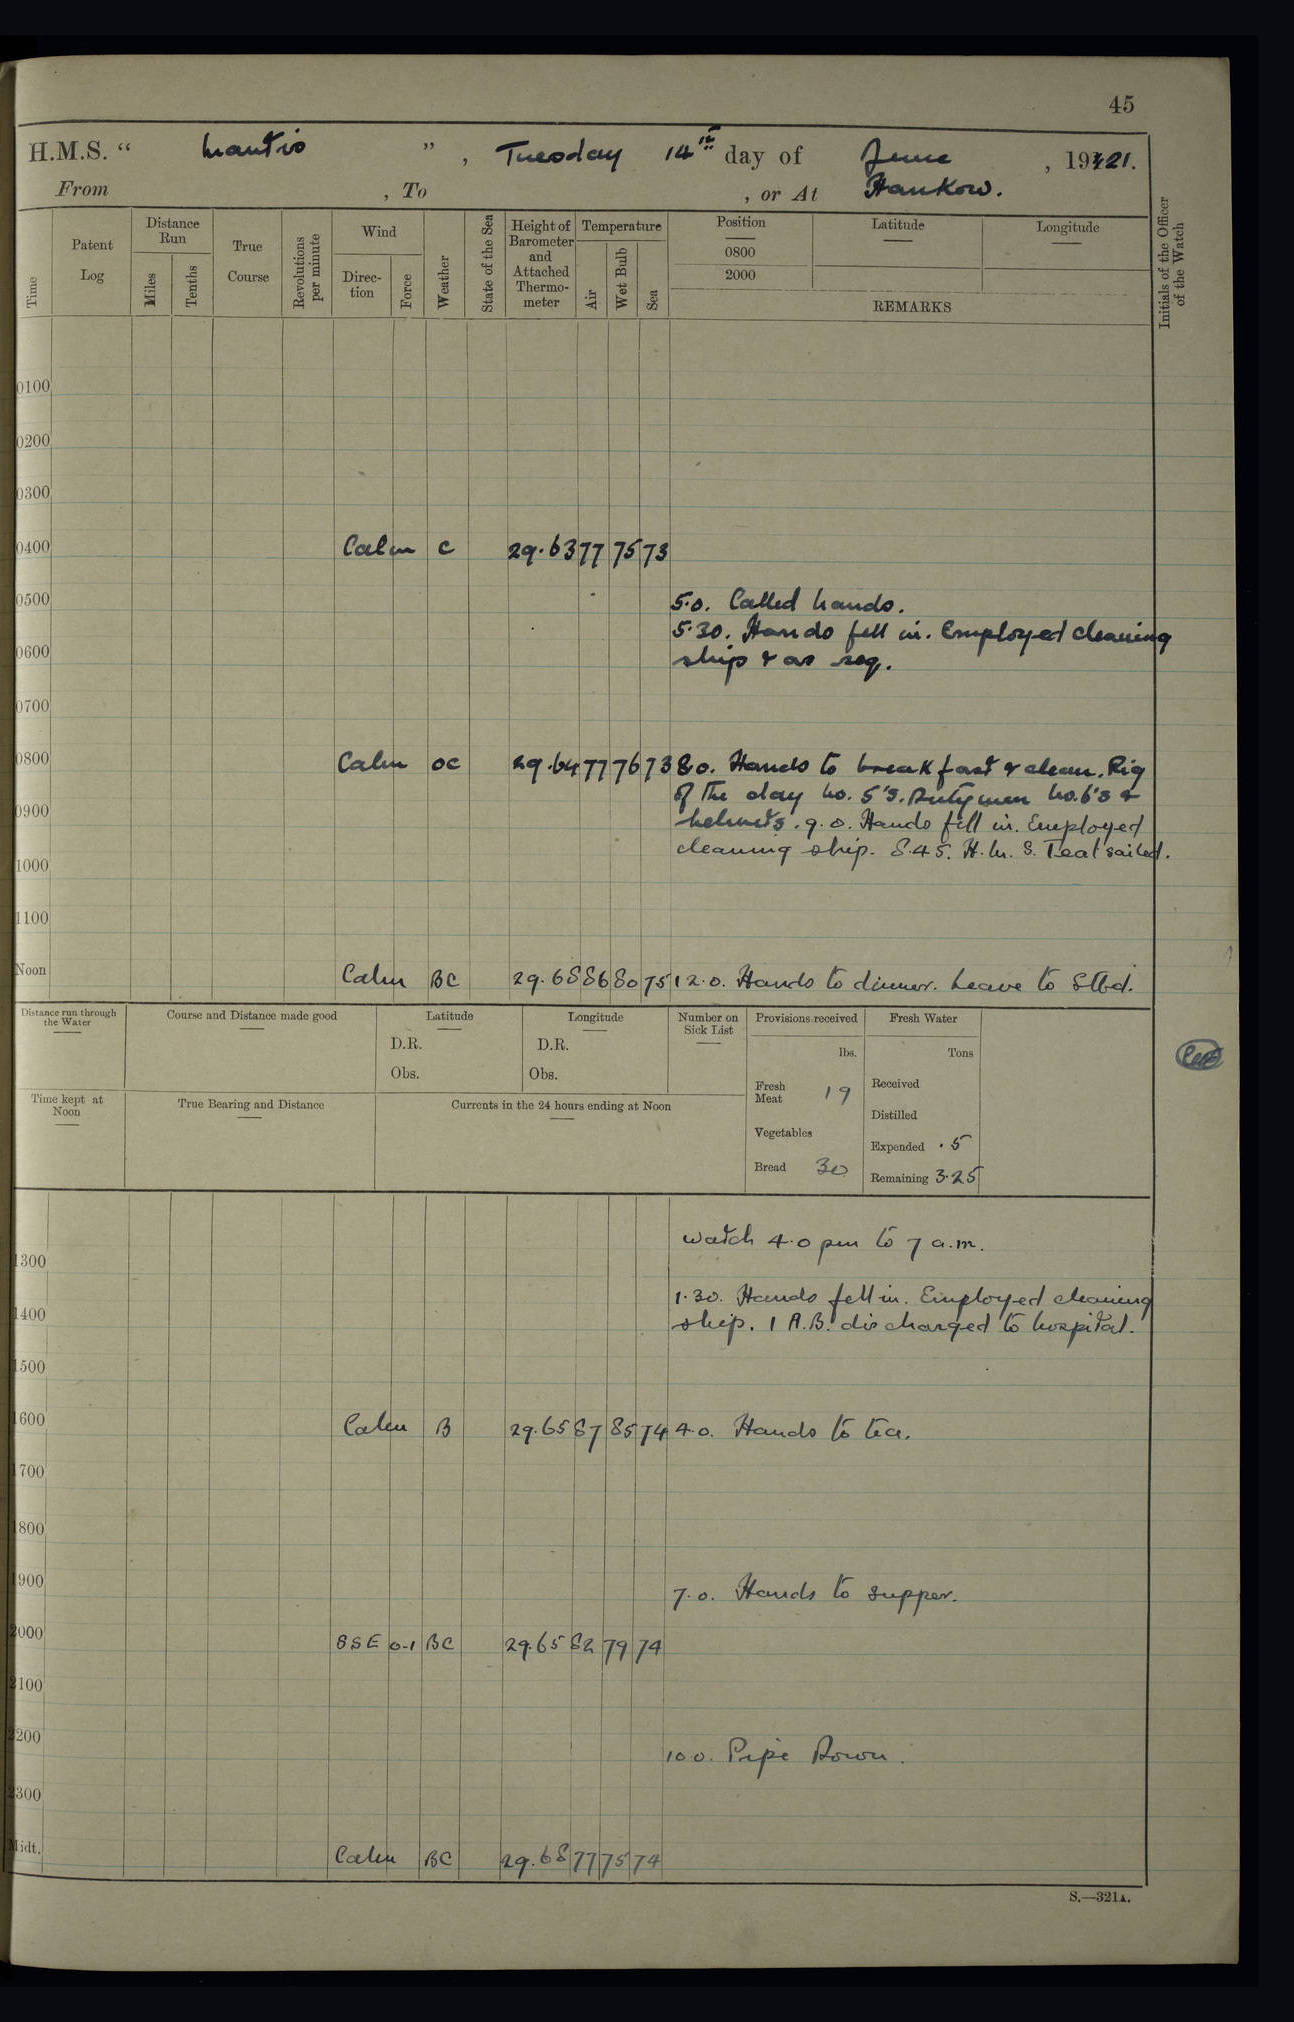 45
H.M.S. " Mantis " , Tuesday 14th day of June , 1921.
From , To , or At Hankow.
Time
Patent Log
Distance Run
Miles
Tenths
True Course
Revolutions per minute
Wind
Direction
Force
Weather
State of the Sea
Height of Barometer and Attached Thermometer
Temperature
Air
Wet Bulb
Sea
Position
0800
2000
Latitude
Longitude
REMARKS
Initials of the Officer of the Watch
0100
0200
0300
0400 Calm C 29.63 77 75 73
0500 5.0. Called hands.
5.30. Hands fell in. Employed cleaning
0600 ship & as req.
0700
0800 Calm OC 29.64 77 76 73 8.0. Hands to breakfast & clean. Rig
of the day No. 5's. Dutymen No. 6's &
0900 helmets. 9.0. Hands fell in. Employed
cleaning ship. 8.45. H.M.S. Teal sailed.
1000
1100
Noon Calm BC 29.68 86 80 75 12.0. Hands to dinner. Leave to Stbd.
Distance run through the Water
Course and Distance made good
Latitude
D.R.
Obs.
Longitude
D.R.
Obs.
Number on Sick List
Provisions received
lbs.
Fresh Meat 19
Vegetables
Bread 30
Fresh Water
Tons
Received
Distilled
Expended .5
Remaining 3.25
Time kept at Noon
True Bearing and Distance
Currents in the 24 hours ending at Noon
watch 4.0 pm to 7 a.m.
1300
1.30. Hands fell in. Employed cleaning
1400 ship. 1 A.B. discharged to hospital.
1500
1600 Calm B 29.65 87 85 74 4.0. Hands to tea.
1700
1800
1900 7.0. Hands to supper.
2000 SSE 0-1 BC 29.65 82 79 74
2100
2200 10.0. Pipe Down.
2300
Midt. Calm BC 29.68 77 75 74
S.—321A.